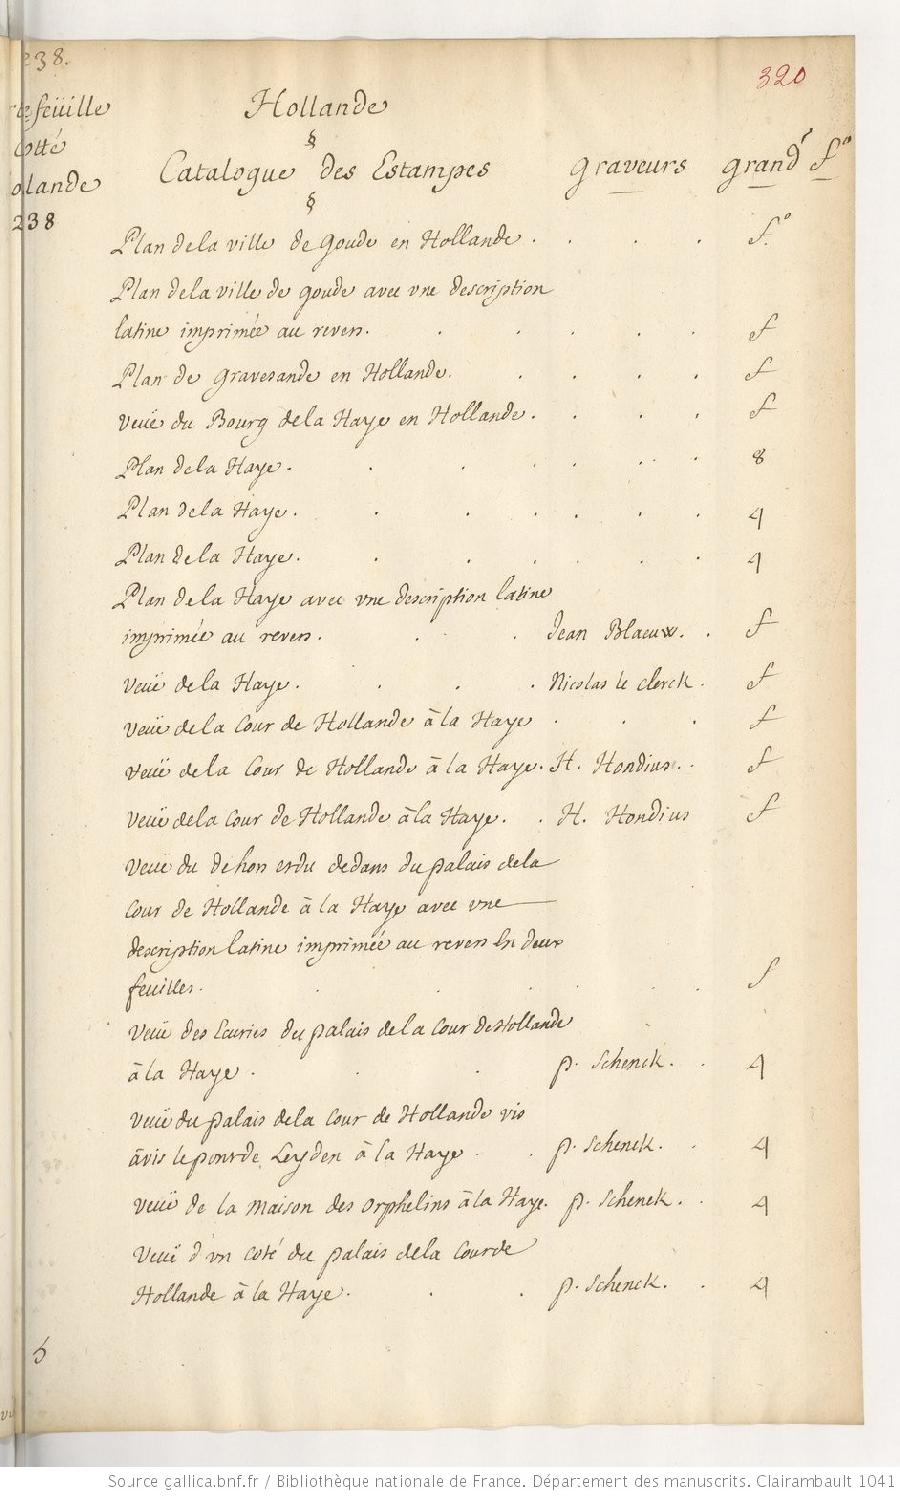 238.
320
Hollande
tefeüille
cotté
olande
238
§
Catalogue des Estampes Graveurs grandr fo
§
Plan dela ville de Goude en Hollande . . . . fo
Plan dela ville de goude avec vne description
latine imprimée au revers. . . . . . f
Plan de Gravesande en Hollande. . . . . f
Veüe du Bourg dela Haye en Hollande . . . . f
Plan dela Haye . . . . . . 8
Plan dela Haye . . . . . . 4
Plan de la Haye . . . . . . 4
Plan de la Haye avec vne description latine
imprimée au revers . . . Jean Blaeuw. . f
Veüe de la Haye . . . . Nicolas le clerck . f
Veüe de la Cour de Hollande à la Haye . . . f
Veüe de la Cour de Hollande à la Haye . H. Hondius . . f
Veüe dela Cour de Hollande à la Haye . . H. Hondius f
Veüe du dehors et du dedans du palais dela
Cour de Hollande à la Haye avec vne
description latine imprimée au revers En deux
feuilles . . . . . . . f
Veüe des Ecuries du palais de la Cour de Hollande
à la Haye . . . p. Schenck. . 4
Veüe du palais dela Cour de Hollande vis
àvis le pont de Leyden à la Haye . . p. Schenck. . 4
Veüe de la maison des orphelins à la Haye. p. Schenck . . 4
Veüe d'vn coté du palais dela Cour de
Hollande à la Haye . . . p. Schenck. . 4
Source gallica.bnf.fr / Bibliothèque nationale de France. Département des manuscrits. Clairambault 1041